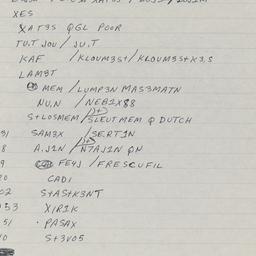 XES
XAT3S QGL POOR
TU.T JOU / JU.T
KAF / KLOUM3ST / KLOUM3S+X3,S
LAM3T
MEM / LUMP3N MAS3MATN
NU.N / NEB1X$8
S+LOSMEM / SLEUT MEM Q DUTCH
31 SAM3X / SERT1N
8 A.J1N / N7AJ1N QN
9 FE4J / FRESCUFIL
20 CAD1
02 S+AS+K3NT
353 X/R1K
51 PASAX
10 S+3V05